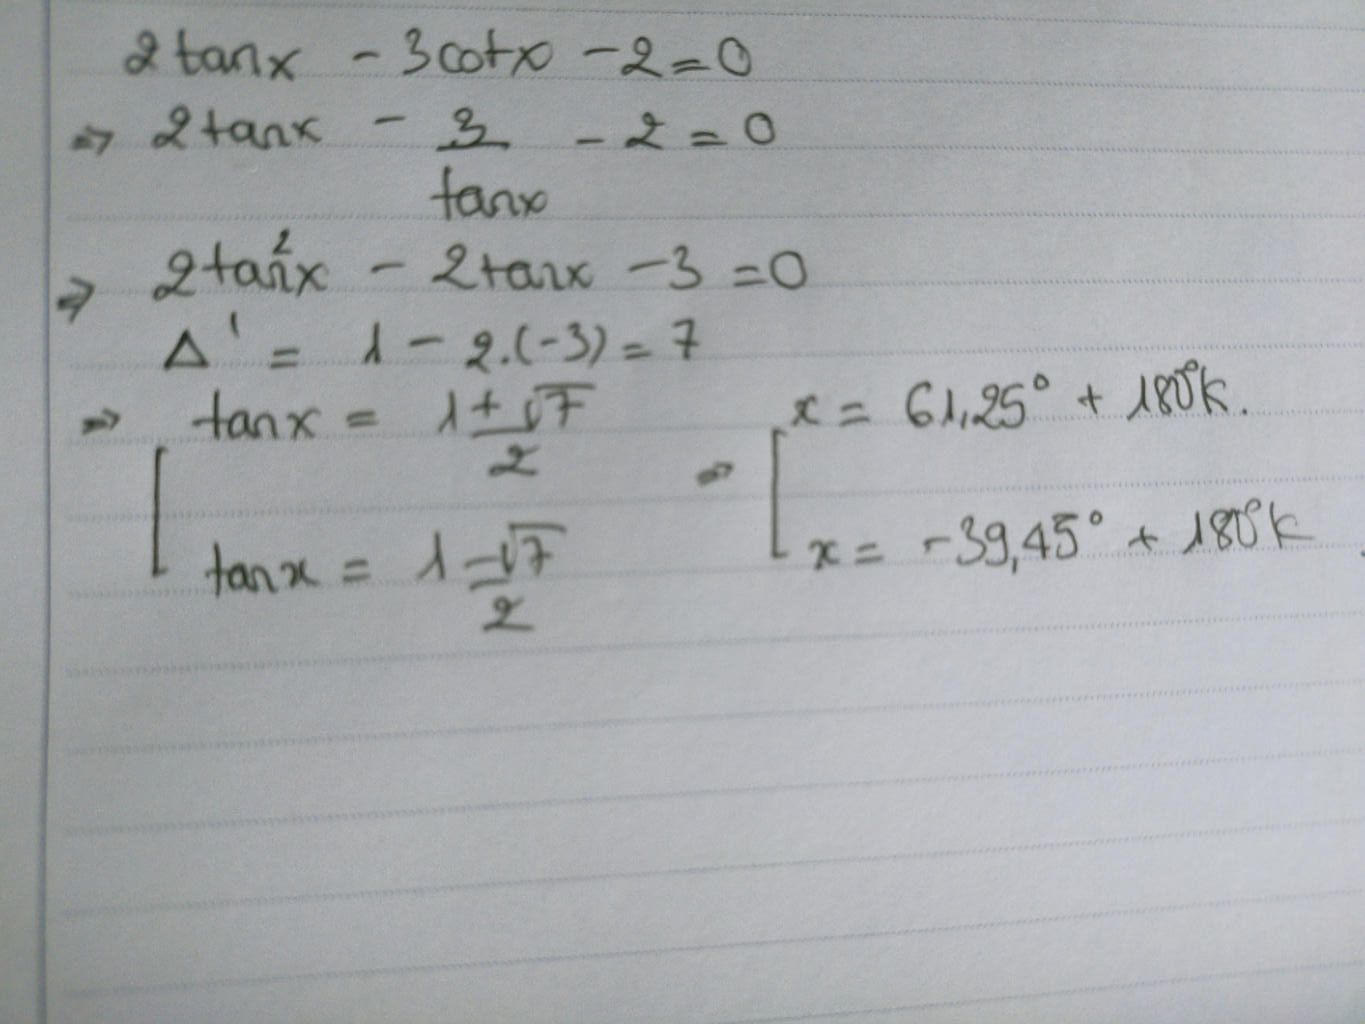 2tanx - 3cotx - 2 = 0
⇒ 2tanx - 3/tanx - 2 = 0
⇒ 2tan²x - 2tanx - 3 = 0
Δ' = 1 - 2.(-3) = 7
⇒ [ tanx = (1+√7)/2 ⇒ [ x = 61,25° + 180°k.
tanx = (1-√7)/2 x = -39,45° + 180°k